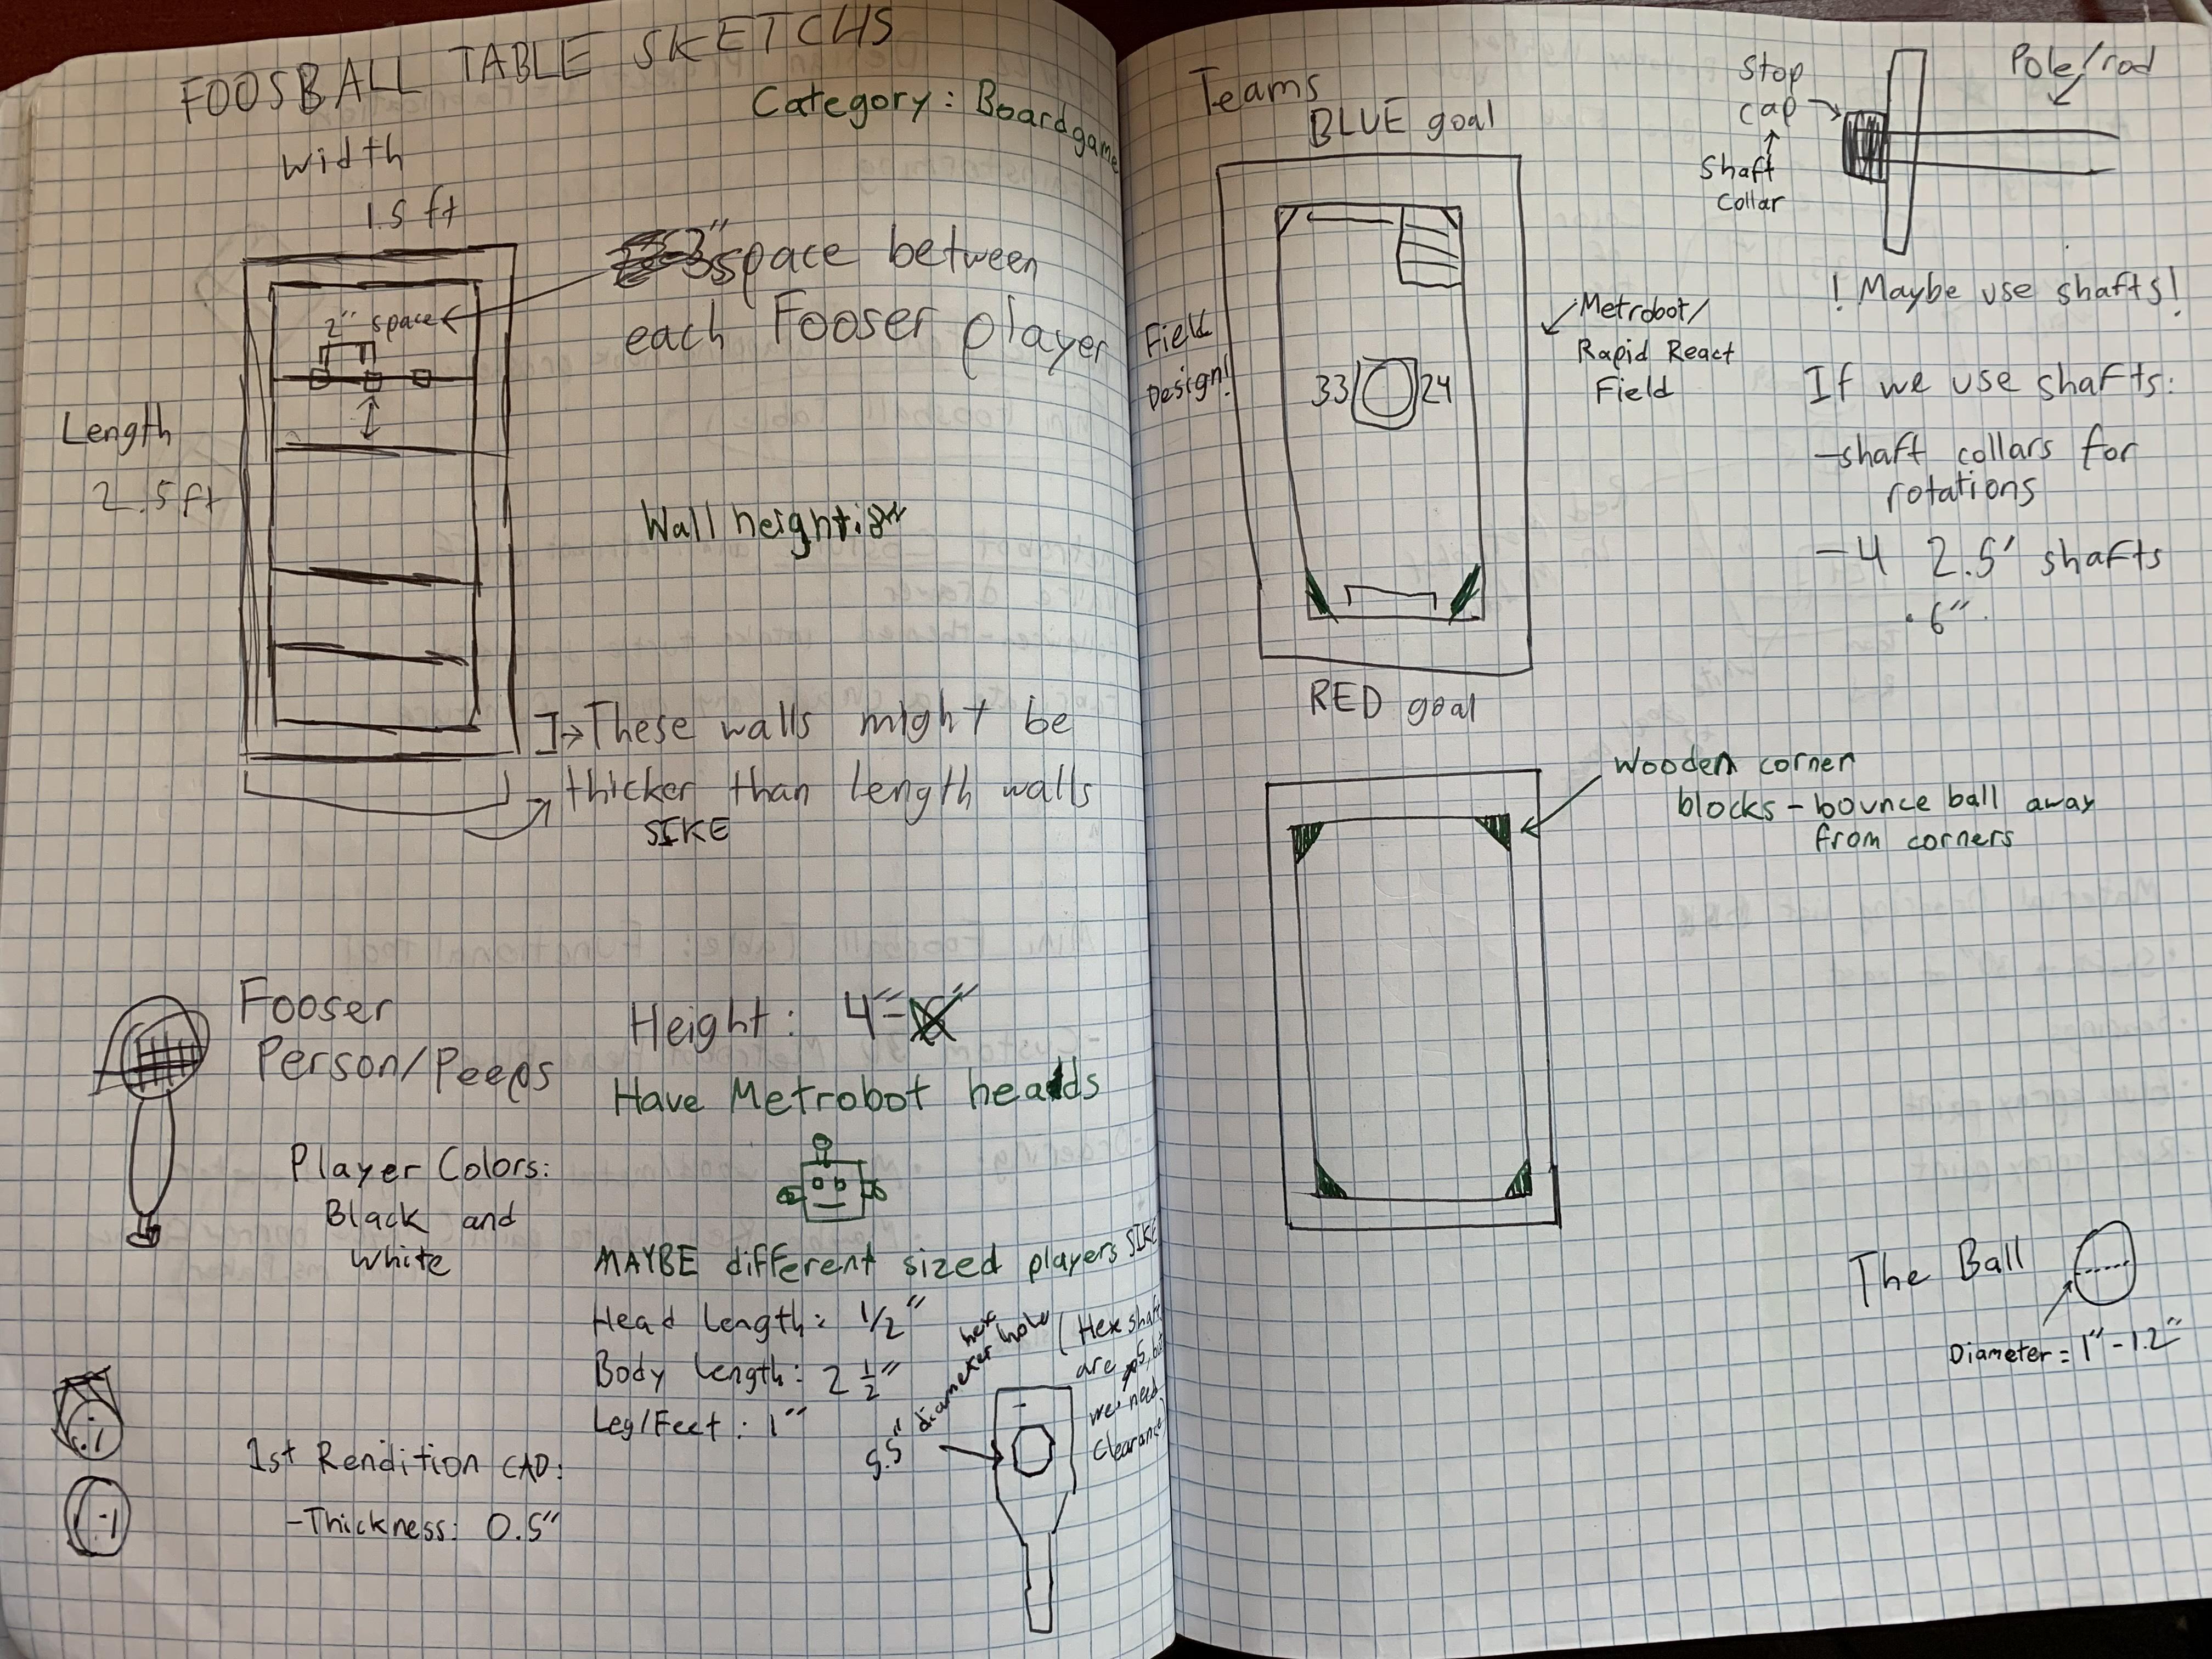 FOOSBALL TABLE SKETCHS
Category: Boardgame
width
1.5 ft
3" space between
each Fooser player
2" space
Length
2.5ft
Wall height:
These walls might be
thicker than length walls
SIKE
Fooser
Person/Peeps
Height: 4"
Have Metrobot heads
Player Colors:
Black and
White
MAYBE different sized players SIKE
Head Length: 1/2"
Body Length: 2 1/2"
Leg/Feet: 1"
diameter
hex
hole
(Hex shaft
are .5, but
we need
clearance)
1st Rendition CAD:
-Thickness: 0.5"
Teams
BLUE goal
Field
Design!
33 24
Metrobot/
Rapid React
Field
RED goal
Stop
cap
Shaft
Collar
Pole/rod
! Maybe use shafts!
If we use shafts:
-shaft collars for
rotations
-4 2.5' shafts
• 6"
Wooden corner
blocks - bounce ball away
from corners
The Ball
Diameter = 1"-1.2"